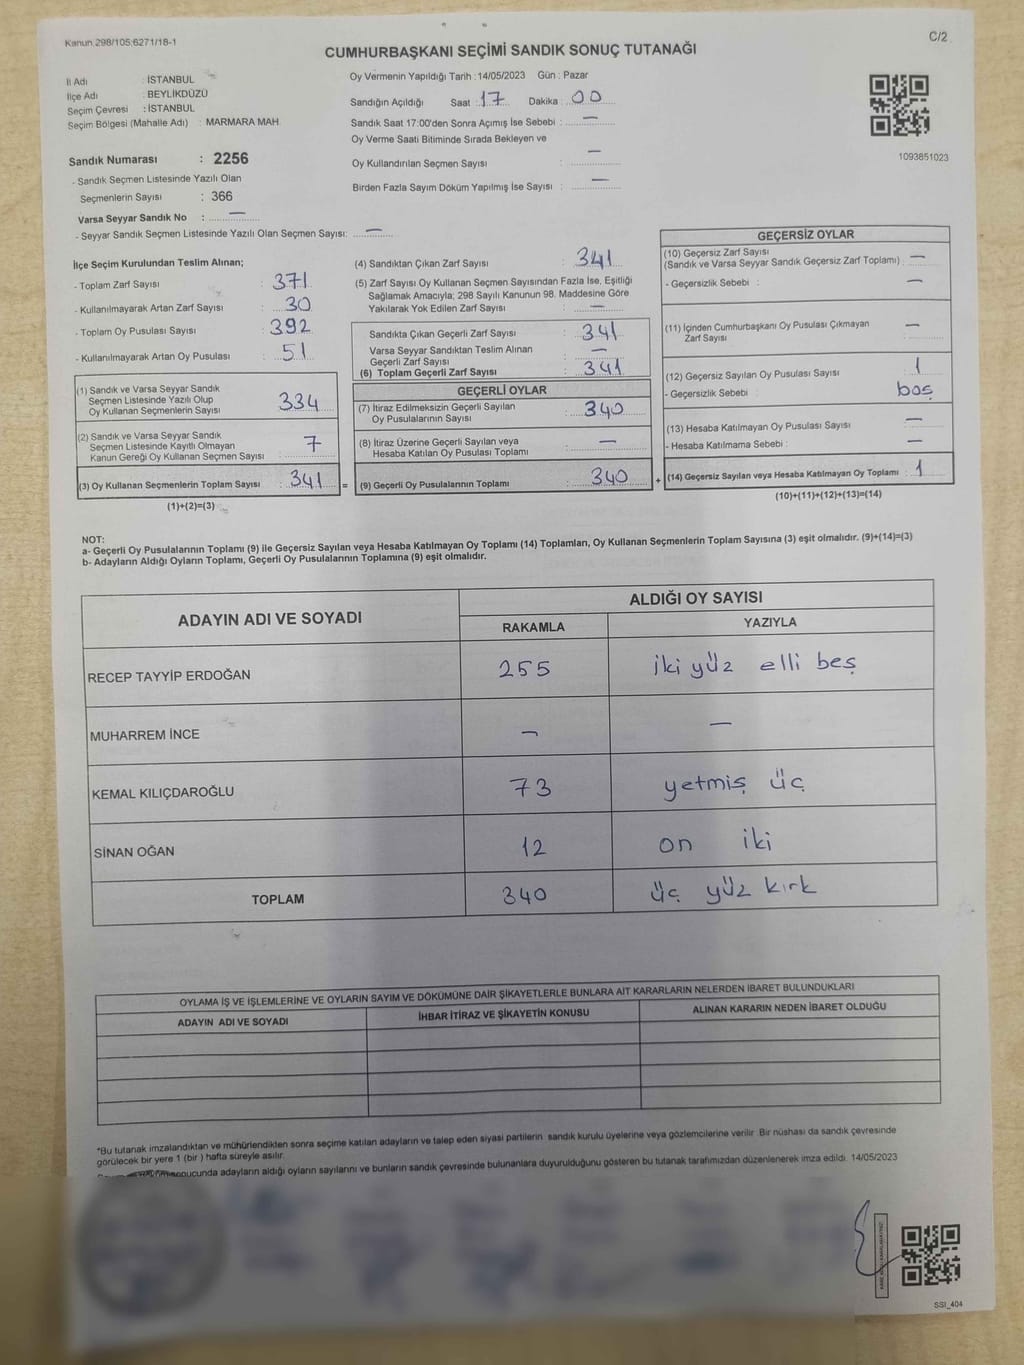 Kanun 298/105;6271/18-1
C/2
CUMHURBAŞKANI SEÇİMİ SANDIK SONUÇ TUTANAĞI
İl Adı : İSTANBUL
İlçe Adı : BEYLİKDÜZÜ
Seçim Çevresi : İSTANBUL
Seçim Bölgesi (Mahalle Adı) : MARMARA MAH.
Oy Vermenin Yapıldığı Tarih : 14/05/2023 Gün : Pazar
Sandığın Açıldığı Saat : 17 Dakika : 00
Sandık Saat 17:00'den Sonra Açımış İse Sebebi : —
Oy Verme Saati Bitiminde Sırada Bekleyen ve
Oy Kullandırılan Seçmen Sayısı : —
Birden Fazla Sayım Döküm Yapılmış İse Sayısı : —
1093851023
Sandık Numarası : 2256
- Sandık Seçmen Listesinde Yazılı Olan
Seçmenlerin Sayısı : 366
Varsa Seyyar Sandık No : —
- Seyyar Sandık Seçmen Listesinde Yazılı Olan Seçmen Sayısı: —
İlçe Seçim Kurulundan Teslim Alınan;
- Toplam Zarf Sayısı : 371
- Kullanılmayarak Artan Zarf Sayısı : 30
- Toplam Oy Pusulası Sayısı : 392
- Kullanılmayarak Artan Oy Pusulası : 51
(1) Sandık ve Varsa Seyyar Sandık
Seçmen Listesinde Yazılı Olup
Oy Kullanan Seçmenlerin Sayısı : 334
(2) Sandık ve Varsa Seyyar Sandık
Seçmen Listesinde Kayıtlı Olmayan
Kanun Gereği Oy Kullanan Seçmen Sayısı : 7
(3) Oy Kullanan Seçmenlerin Toplam Sayısı : 341 =
(1)+(2)=(3)
(4) Sandıktan Çıkan Zarf Sayısı : 341
(5) Zarf Sayısı Oy Kullanan Seçmen Sayısından Fazla İse, Eşitliği
Sağlamak Amacıyla; 298 Sayılı Kanunun 98. Maddesine Göre
Yakılarak Yok Edilen Zarf Sayısı : —
Sandıkta Çıkan Geçerli Zarf Sayısı : 341
Varsa Seyyar Sandıktan Teslim Alınan
Geçerli Zarf Sayısı : —
(6) Toplam Geçerli Zarf Sayısı : 341
GEÇERLİ OYLAR
(7) İtiraz Edilmeksizin Geçerli Sayılan
Oy Pusulalarının Sayısı : 340
(8) İtiraz Üzerine Geçerli Sayılan veya
Hesaba Katılan Oy Pusulası Toplamı : —
(9) Geçerli Oy Pusulalarının Toplamı : 340 +
GEÇERSİZ OYLAR
(10) Geçersiz Zarf Sayısı
(Sandık ve Varsa Seyyar Sandık Geçersiz Zarf Toplamı) : —
- Geçersizlik Sebebi : —
(11) İçinden Cumhurbaşkanı Oy Pusulası Çıkmayan
Zarf Sayısı : —
(12) Geçersiz Sayılan Oy Pusulası Sayısı : 1
- Geçersizlik Sebebi : boş
(13) Hesaba Katılmayan Oy Pusulası Sayısı : —
- Hesaba Katılmama Sebebi : —
(14) Geçersiz Sayılan veya Hesaba Katılmayan Oy Toplamı : 1
(10)+(11)+(12)+(13)=(14)
NOT:
a- Geçerli Oy Pusulalarının Toplamı (9) ile Geçersiz Sayılan veya Hesaba Katılmayan Oy Toplamı (14) Toplamları, Oy Kullanan Seçmenlerin Toplam Sayısına (3) eşit olmalıdır. (9)+(14)=(3)
b- Adayların Aldığı Oyların Toplamı, Geçerli Oy Pusulalarının Toplamına (9) eşit olmalıdır.
ADAYIN ADI VE SOYADI
ALDIĞI OY SAYISI
RAKAMLA YAZIYLA
RECEP TAYYİP ERDOĞAN 255 iki yüz elli beş
MUHARREM İNCE — —
KEMAL KILIÇDAROĞLU 73 yetmiş üç
SİNAN OĞAN 12 on iki
TOPLAM 340 üç yüz kırk
OYLAMA İŞ VE İŞLEMLERİNE VE OYLARIN SAYIM VE DÖKÜMÜNE DAİR ŞİKAYETLERLE BUNLARA AİT KARARLARIN NELERDEN İBARET BULUNDUKLARI
ADAYIN ADI VE SOYADI İHBAR İTİRAZ VE ŞİKAYETİN KONUSU ALINAN KARARIN NEDEN İBARET OLDUĞU
*Bu tutanak imzalandıktan ve mühürlendikten sonra seçime katılan adayların ve talep eden siyasi partilerin sandık kurulu üyelerine veya gözlemcilerine verilir. Bir nüshası da sandık çevresinde
görülecek bir yere 1 (bir ) hafta süreyle asılır.
adayların aldığı oyların sayılarını ve bunların sandık çevresinde bulunanlara duyurulduğunu gösteren bu tutanak tarafımızdan düzenlenerek imza edildi. 14/05/2023
SSI_404